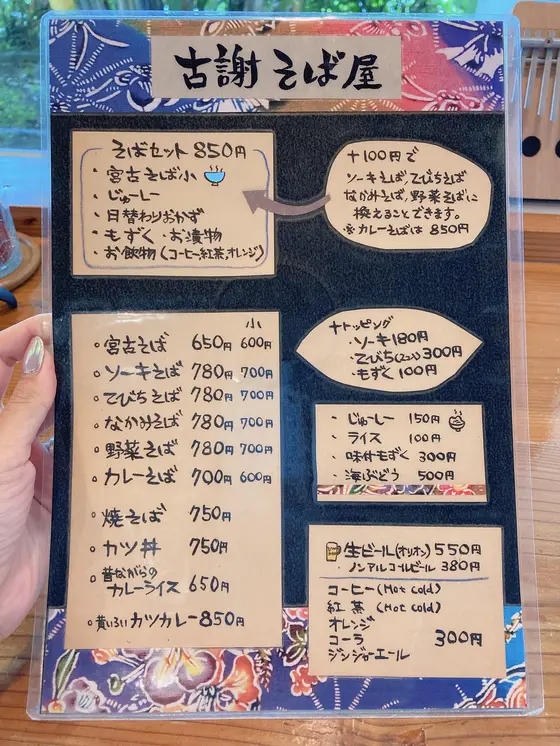 古謝そば屋
そばセット 850円
・宮古そば小
・じゅーしー
・日替わりおかず
・もずく・お漬物
・お飲物(コーヒー紅茶オレンジ)
+100円で
ソーキそば、てびちそば
なかみそば、野菜そばに
換えることできます。
※カレーそばは 850円
小
○宮古そば 650円 600円
○ソーキそば 780円 700円
○てびちそば 780円 700円
○なかみそば 780円 700円
○野菜そば 780円 700円
○カレーそば 700円 600円
○焼そば 750円
○カツ丼 750円
○昔ながらの
カレーライス 650円
○黄いろいカツカレー 850円
+トッピング
・ソーキ 180円
・てびち(2コ) 300円
・もずく 100円
・じゅーしー 150円
・ライス 100円
・味付もずく 300円
・海ぶどう 500円
生ビール(オリオン) 550円
ノンアルコールビール 380円
コーヒー (Hot cold)
紅茶 (Hot cold)
オレンジ
コーラ 300円
ジンジャーエール